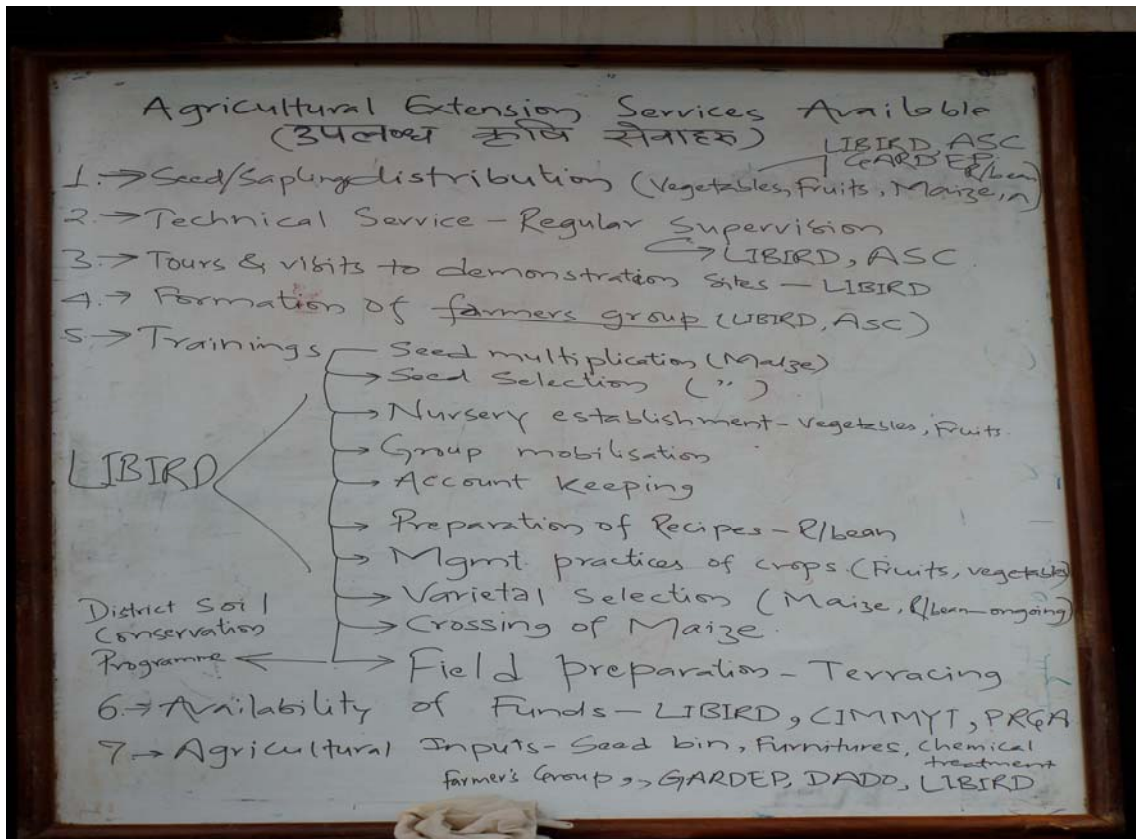 Agricultural Extension Services Available
(उपलब्ध कृषि सेवाहरु)
LIBIRD, ASC
GARDEP
R/bean
1. → Seed/Sapling distribution (Vegetables, Fruits, Maize, )
2. → Technical Service - Regular Supervision
→ LIBIRD, ASC
3. → Tours & visits to demonstration Sites - LIBIRD
4. → Formation of farmers group (LIBIRD, ASC)
5. → Trainings
Seed multiplication (Maize)
→ Seed Selection ( " )
→ Nursery establishment - vegetables, Fruits
→ Group mobilisation
LIBIRD
→ Account Keeping
→ Preparation of Recipes - R/bean
→ Mgmt. practices of crops (Fruits, vegetable)
→ Varietal Selection (Maize, R/bean - ongoing)
→ Crossing of Maize
District Soil
Conservation
Programme ←
→ Field preparation - Terracing
6. → Availability of Funds - LIBIRD, CIMMYT, PRGA
7. → Agricultural Inputs - Seed bin, Furnitures, chemical
treatment
farmer's Group ,, GARDEP, DADO, LIBIRD